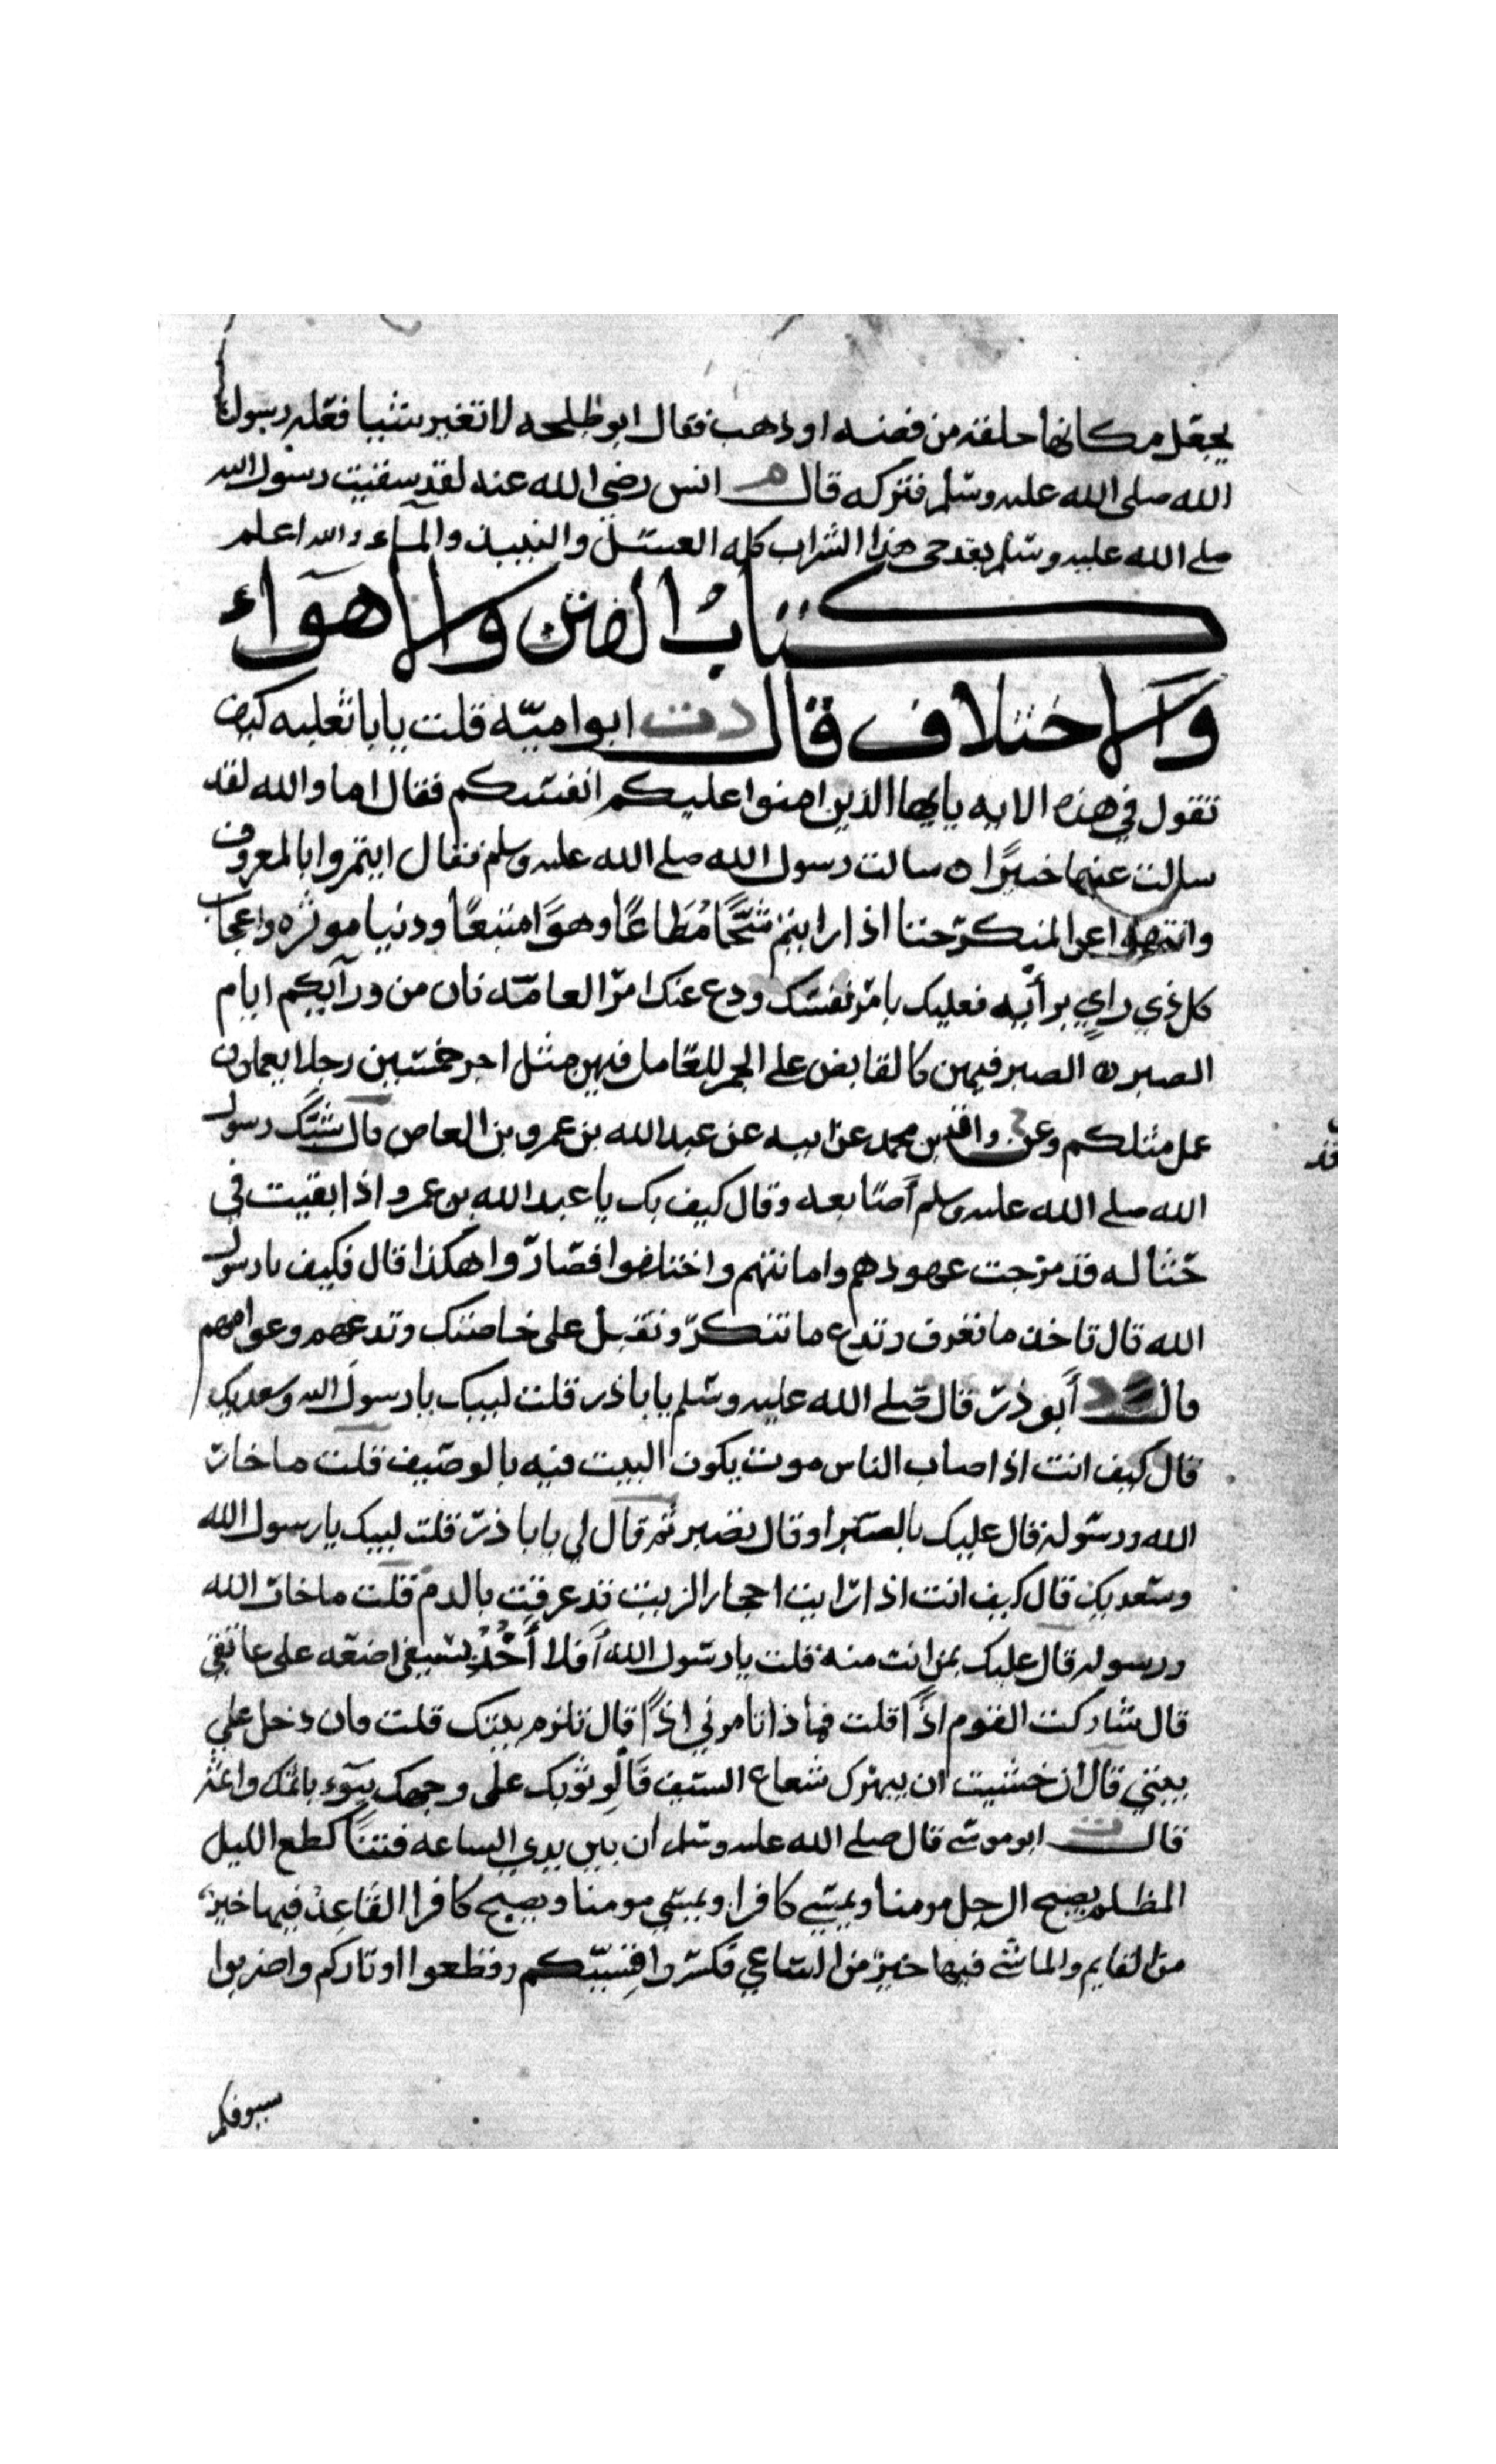 يجعل مكانها حلقه من فضه او ذهب فقال ابو طلحه لا تغير شيئا فعله رسول
الله صلى الله عليه وسلم فتركه قال م انس رضي الله عنه لقد سقيت رسول الله
صلى الله عليه وسلم بقدحي هذا الشراب كله العسل والنبيذ والماء والله اعلم
كتاب الفتن والاهواء
والاختلاف قال دت ابو اميّه قلت يابا ثعلبه كيف
تقول في هذه الايه يايها الذين امنوا عليكم انفسكم فقال اما والله لقد
سالت عنها خبيرًا ٥ سالت رسول الله صلى الله عليه وسلم فقال ايتمروا بالمعروف
وانتهوا عن المنكر حتا اذا رايتم شُحًّا مُطَاعًا وهوًا متبعًا ودنيا موثره واعجاب
كل ذي راي برأيه فعليك بامر نفسك ودع عنك امر العامّه فان من ورآيكم ايام
الصبر ٥ الصبر فيهن كالقابض على الجمر للعامل فيهن مثل اجر خمسين رجلا يعملون
عمل مثلكم وعن خ واقد بن محمد عن ابيه عن عبد الله بن عمرو بن العاص قال شبّك رسول
الله صلى الله عليه وسلم أصابعه وقال كيف بك يا عبد الله بن عمرو اذا بقيت في
حثاله قد مرجت عهودهم واماناتهم واختلفوا فصاروا هكذا قال فكيف يارسول
الله قال تاخذ ما تعرف وتدع ما تنكر وتقبل على خاصتك وتدعهم وعوامهم
قال د أبو ذر قال صلى الله عليه وسلم يابا ذر قلت لبيك يا رسول الله وسعديك
قال كيف انت اذا اصاب الناس موت يكون البيت فيه بالوصيف قلت ما خار
الله ورسوله قال عليك بالصبر او قال تصبر ثم قال لي يابا ذر قلت لبيك يا رسول الله
وسعديك قال كيف انت اذا رايت احجار الزيت قد غرقت بالدم قلت ما خار الله
ورسوله قال عليك بمن انت منه قلت يا رسول الله أفلا أخُذُ سيفي اضعه على عاتقي
قال شاركت القوم اذًا قلت فما ذا تامرني اذًا قال تلزم بيتك قلت فان دخل علي
بيتي قال ان خشيت ان يبهرك شعاع السيف فألق ثوبك على وجهك يبوء باثمك واثمه
قال ت ابو موسى قال صلى الله عليه وسلم ان بين يدي الساعه فتنًا كقطع الليل
المظلم يصبح الرجل مومنا ويمسي كافرا ويمسي مومنا ويصبح كافرا القاعد فيها خير
من القايم والماشي فيها خير من الساعي فكسروا قسيّكم وقطعوا اوتاركم واضربوا
سيوفكم